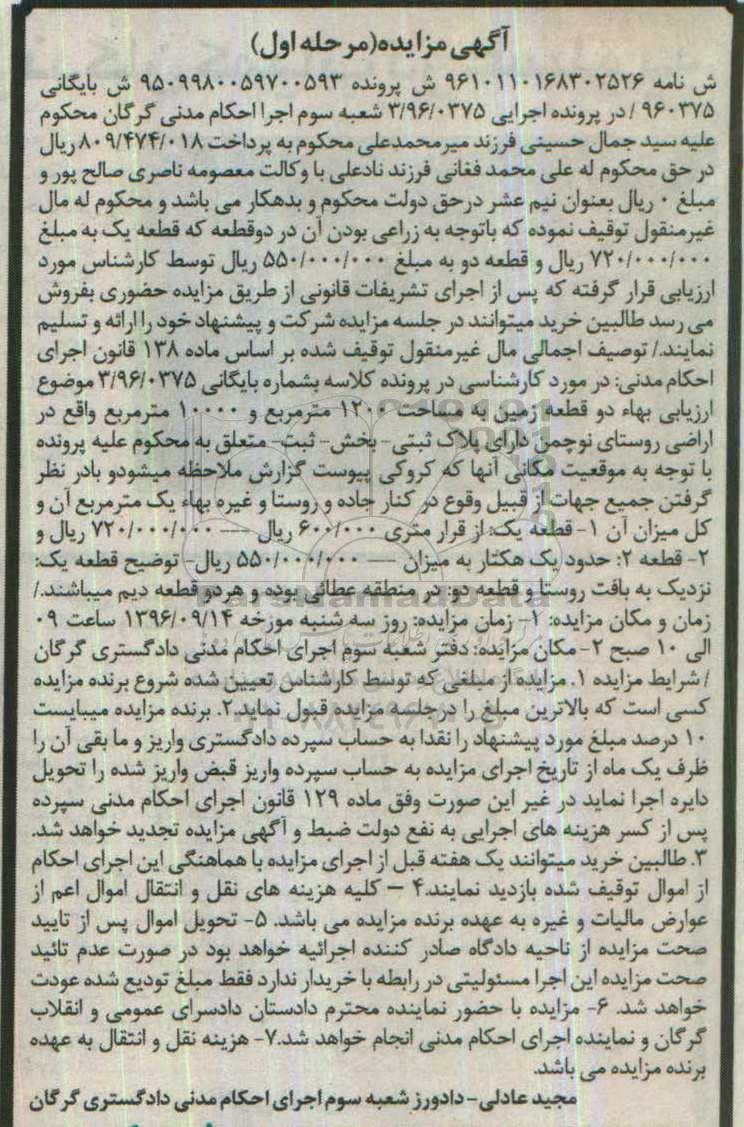 آگهی مزایده(مرحله اول)
ش نامه ۹۶۱۰۱۱۰۱۶۸۳۰۲۵۲۶ ش پرونده ۹۵۰۹۹۸۰۰۵۹۷۰۰۵۹۳ ش بایگانی
۹۶۰۳۷۵ / در پرونده اجرایی ۳/۹۶/۰۳۷۵ شعبه سوم اجرا احکام مدنی گرگان محکوم
علیه سید جمال حسینی فرزند میرمحمدعلی محکوم به پرداخت ۸۰۹/۴۷۴/۰۱۸ ریال
در حق محکوم له علی محمد فغانی فرزند نادعلی با وکالت معصومه ناصری صالح پور و
مبلغ ۰ ریال بعنوان نیم عشر درحق دولت محکوم و بدهکار می باشد و محکوم له مال
غیرمنقول توقیف نموده که باتوجه به زراعی بودن آن در دوقطعه که قطعه یک به مبلغ
۷۲۰/۰۰۰/۰۰۰ ریال و قطعه دو به مبلغ ۵۵۰/۰۰۰/۰۰۰ ریال توسط کارشناس مورد
ارزیابی قرار گرفته که پس از اجرای تشریفات قانونی از طریق مزایده حضوری بفروش
می رسد طالبین خرید میتوانند در جلسه مزایده شرکت و پیشنهاد خود را ارائه و تسلیم
نمایند./ توصیف اجمالی مال غیرمنقول توقیف شده بر اساس ماده ۱۳۸ قانون اجرای
احکام مدنی: در مورد کارشناسی در پرونده کلاسه بشماره بایگانی ۳/۹۶/۰۳۷۵ موضوع
ارزیابی بهاء دو قطعه زمین به مساحت ۱۲۰۰ مترمربع و ۱۰۰۰۰ مترمربع واقع در
اراضی روستای نوچمن دارای پلاک ثبتی- بخش- ثبت- متعلق به محکوم علیه پرونده
با توجه به موقعیت مکانی آنها که کروکی پیوست گزارش ملاحظه میشودو بادر نظر
گرفتن جمیع جهات از قبیل وقوع در کنار جاده و روستا و غیره بهاء یک مترمربع آن و
کل میزان آن ۱- قطعه یک: از قرار متری ۶۰۰/۰۰۰ ریال --- ۷۲۰/۰۰۰/۰۰۰ ریال و
۲- قطعه ۲: حدود یک هکتار به میزان --- ۵۵۰/۰۰۰/۰۰۰ ریال- توضیح قطعه یک:
نزدیک به بافت روستا و قطعه دو: در منطقه عطائی بوده و هردو قطعه دیم میباشند./
زمان و مکان مزایده: ۱- زمان مزایده: روز سه شنبه مورخه ۱۳۹۶/۰۹/۱۴ ساعت ۰۹
الی ۱۰ صبح ۲- مکان مزایده: دفتر شعبه سوم اجرای احکام مدنی دادگستری گرگان
/ شرایط مزایده ۱. مزایده از مبلغی که توسط کارشناس تعیین شده شروع برنده مزایده
کسی است که بالاترین مبلغ را درجلسه مزایده قبول نماید.۲. برنده مزایده میبایست
۱۰ درصد مبلغ مورد پیشنهاد را نقدا به حساب سپرده دادگستری واریز و ما بقی آن را
ظرف یک ماه از تاریخ اجرای مزایده به حساب سپرده واریز قبض واریز شده را تحویل
دایره اجرا نماید در غیر این صورت وفق ماده ۱۲۹ قانون اجرای احکام مدنی سپرده
پس از کسر هزینه های اجرایی به نفع دولت ضبط و آگهی مزایده تجدید خواهد شد.
۳. طالبین خرید میتوانند یک هفته قبل از اجرای مزایده با هماهنگی این اجرای احکام
از اموال توقیف شده بازدید نمایند.۴ – کلیه هزینه های نقل و انتقال اموال اعم از
عوارض مالیات و غیره به عهده برنده مزایده می باشد. ۵- تحویل اموال پس از تایید
صحت مزایده از ناحیه دادگاه صادر کننده اجرائیه خواهد بود در صورت عدم تائید
صحت مزایده این اجرا مسئولیتی در رابطه با خریدار ندارد فقط مبلغ تودیع شده عودت
خواهد شد. ۶- مزایده با حضور نماینده محترم دادستان دادسرای عمومی و انقلاب
گرگان و نماینده اجرای احکام مدنی انجام خواهد شد.۷- هزینه نقل و انتقال به عهده
برنده مزایده می باشد.
مجید عادلی- دادورز شعبه سوم اجرای احکام مدنی دادگستری گرگان